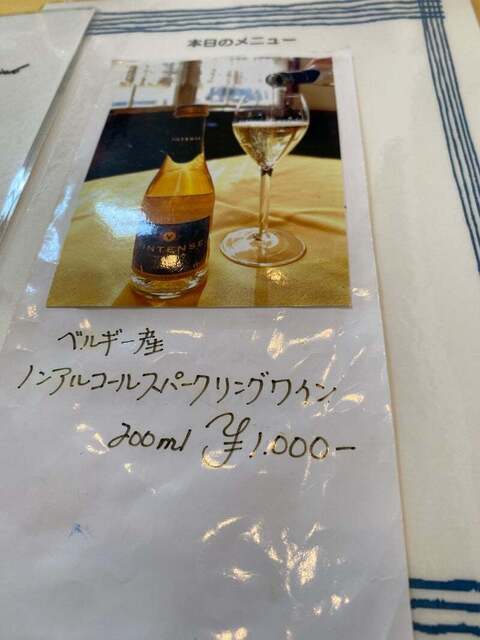 本日のメニュー
INTENSE
INTENSE
ベルギー産
ノンアルコールスパークリングワイン
200ml ¥1.000-